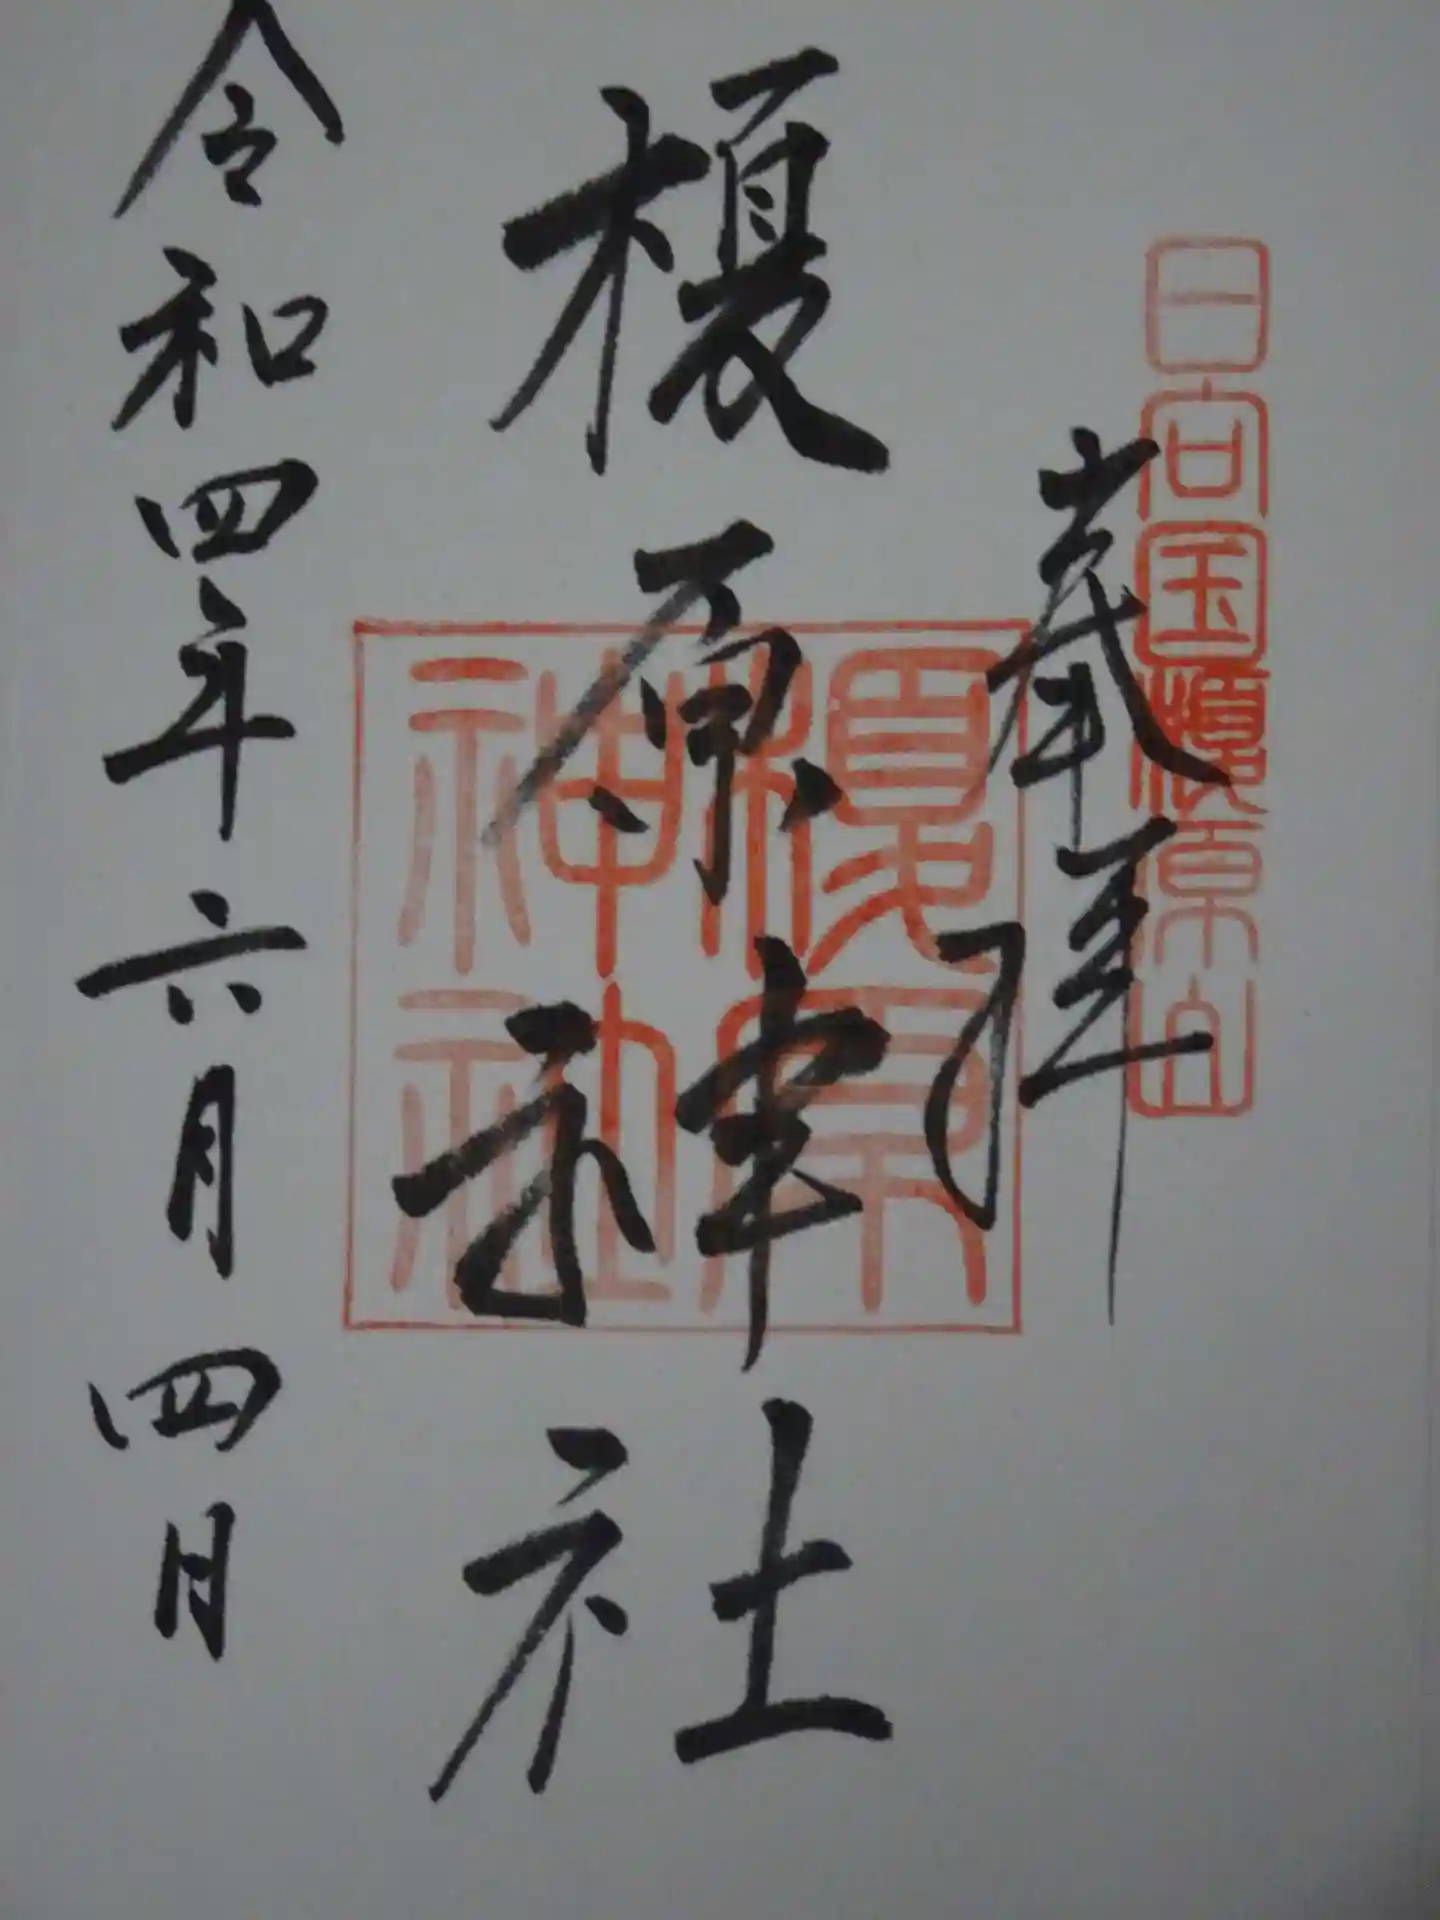 日向国榎原山
奉拝
榎原神社
榎原
神社
令和四年六月四日